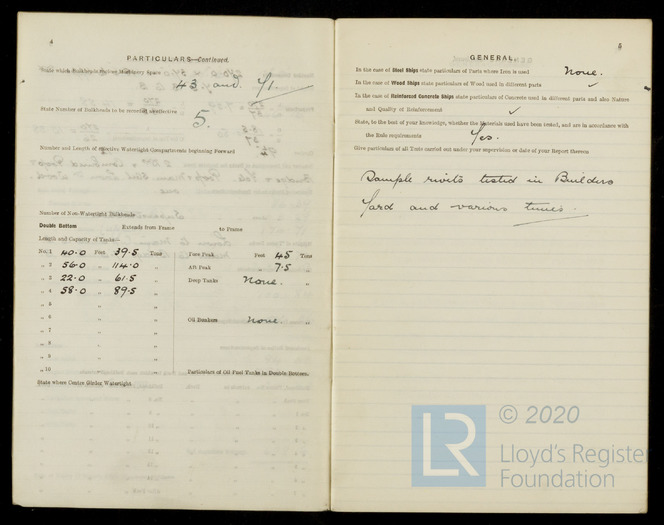 4
PARTICULARS—Continued.
State which Bulkheads enclose Machinery Space
43 and 71.
State Number of Bulkheads to be recorded as effective
5.
Number and Length of effective Watertight Compartments beginning Forward
Number of Non-Watertight Bulkheads
Double Bottom Extends from Frame to Frame
Length and Capacity of Tanks—
No. 1 40.0 Feet 39.5 Tons Fore Peak Feet 45 Tons
„ 2 56.0 „ 114.0 „ Aft Peak „ 7.5 „
„ 3 22.0 „ 61.5 „ Deep Tanks None. „
„ 4 58.0 „ 89.5 „
„ 5 „ „
„ 6 „ „ Oil Bunkers None. „
„ 7 „ „
„ 8 „ „
„ 9 „ „
„ 10 „ „ Particulars of Oil Fuel Tanks in Double Bottom.
State where Centre Girder Watertight
5
GENERAL.
In the case of Steel Ships state particulars of Parts where Iron is used None.
In the case of Wood Ships state particulars of Wood used in different parts ✓
In the case of Reinforced Concrete Ships state particulars of Concrete used in different parts and also Nature
and Quality of Reinforcement ✓
State, to the best of your knowledge, whether the Materials used have been tested, and are in accordance with
the Rule requirements Yes.
Give particulars of all Tests carried out under your supervision or date of your Report thereon
Sample rivets tested in Builders
Yard and various times.
© 2020
LR
Lloyd's Register
Foundation